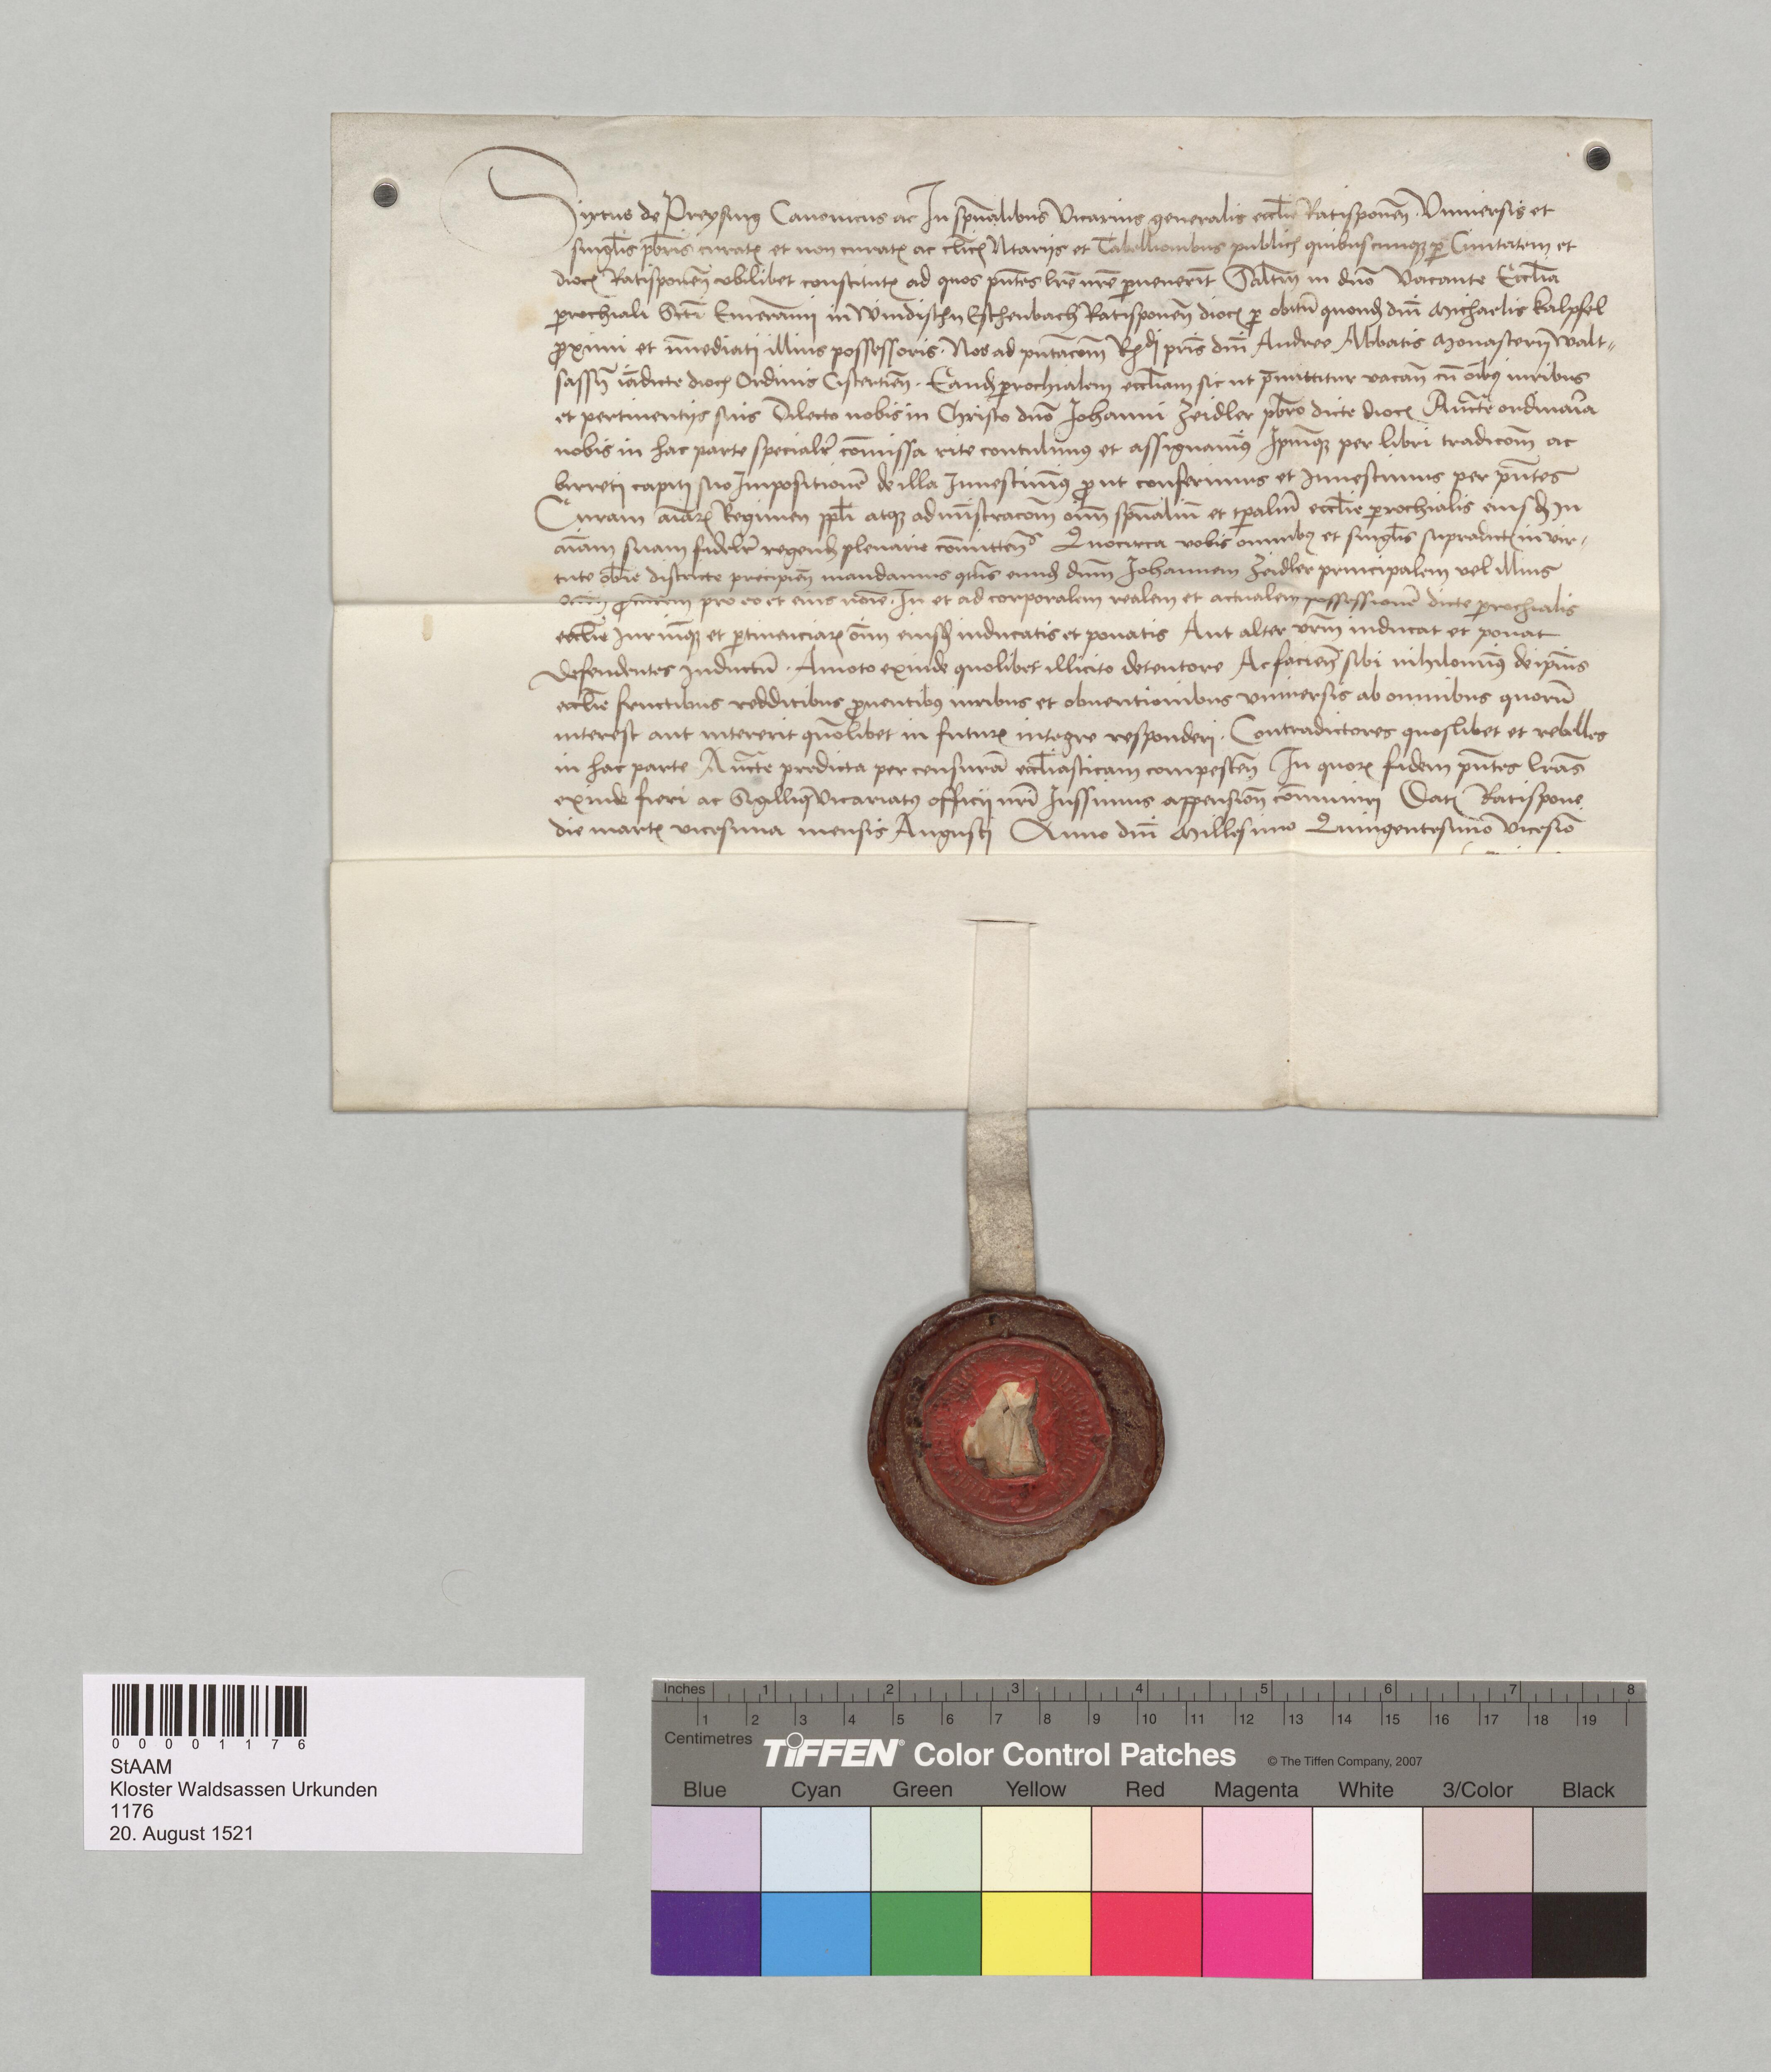 Sixtus de Preysing Canonicus ac In sp̄ualibus Vicarius generalis eccl̄ie Ratisponeñ. Vniuersis et
singl̄is pb̄ris curatꝫ et non curatꝫ ac cl̄icꝫ Ntarijs et Tabellionibus publicꝫ quibuscumqꝫ ꝑ Ciuitatem et
diocꝫ Ratisponeñ vbilibet constitutꝫ ad quos pn̄tes lr̄e nr̄e ꝑuenerīt Salt̄m in dn̄o Vacante Eccl̄ia
ꝑrochiali Sct̄i Emerāmi in Windischn Eschenbach Ratisponeñ diocꝫ ꝑ obitū quondꝫ dn̄i Michaelis kalpfel
ꝓximi et īmediati illius possessoris. Nos ad pn̄tac̄om Rꝫdi pr̄is dn̄i Andree Abbatis Monasterij Walt-
sassn̄ iādicte diocꝫ Ordinis Cistercieñ. Eandꝫ ꝑrochialem eccl̄iam sic ut p̄mittitur vacañ cū oībꝫ iuribus
et pertinentijs suis Dilecto nobis in Christo dn̄o Johanni Zeidler pb̄ro dicte diocꝫ Auct̄e ordinar̄ia
nobis in hac parte specialr̄ cōmissa rite contulimꝰ et assignauimꝰ Ip̄mqꝫ per libri tradic̄om ac
birreti capiti suo Impositionē de illa Inuestiuimꝰ ꝓ ut conferimus et Inuestimus per pn̄tes
Curam aīarꝫ Regimen ppl̄i atqꝫ admīstrac̄om oīm sp̄ualiū et tp̄aliū eccl̄ie ꝑrochialis eiusdꝫ In
aīam suam fidelr̄ regendꝫ plenarie cōmitteñ Quocirca vobis omnibꝫ et singl̄is supradictꝫ in vir-
tute ob̄ie districte precipieñ mandamus qt̄us eundꝫ dn̄m Johannem Zeidler principalem vel illius
pro eo et eius noīe. In et ad corporalem realem et actualem possessionē dicte ꝑrochialis
eccl̄ie Iuriūqꝫ et ꝑtinenciarꝫ oīm eiusdꝫ inducatis et ponatis Aut alter vr̄m inducat et ponat
Defendentes Inductū. Amoto exinde quolibet illicito detentore Ac facieñ sibi nihilominꝰ de ip̄ius
eccl̄ie fructibus redditibus ꝓuentibꝫ iuribus et obuentionibus vniuersis ab omnibus quorū
interest aut intererit quōlibet in futurꝫ integre responderi. Contradictores quoslibet et rebelles
in hac parte Auct̄e predicta per censurā eccl̄iasticam compesceñ In quorꝫ fidem pn̄tes lr̄as
exinde fieri ac Sigilliqꝫ Vicariatꝰ officij nr̄i Iussimus appensioñ cōmuniri Datꝫ Ratispone
die martꝫ vicesima mensis Augusti Anno dn̄i Millesimo Quingentesimo Vicesīo
0 0 0 0 1 1 7 6
StAAM
Kloster Waldsassen Urkunden
1176
20. August 1521
Inches 1 2 3 4 5 6 7 8
1 2 3 4 5 6 7 8 9 10 11 12 13 14 15 16 17 18 19
Centimetres
TIFFEN® Color Control Patches © The Tiffen Company, 2007
Blue Cyan Green Yellow Red Magenta White 3/Color Black